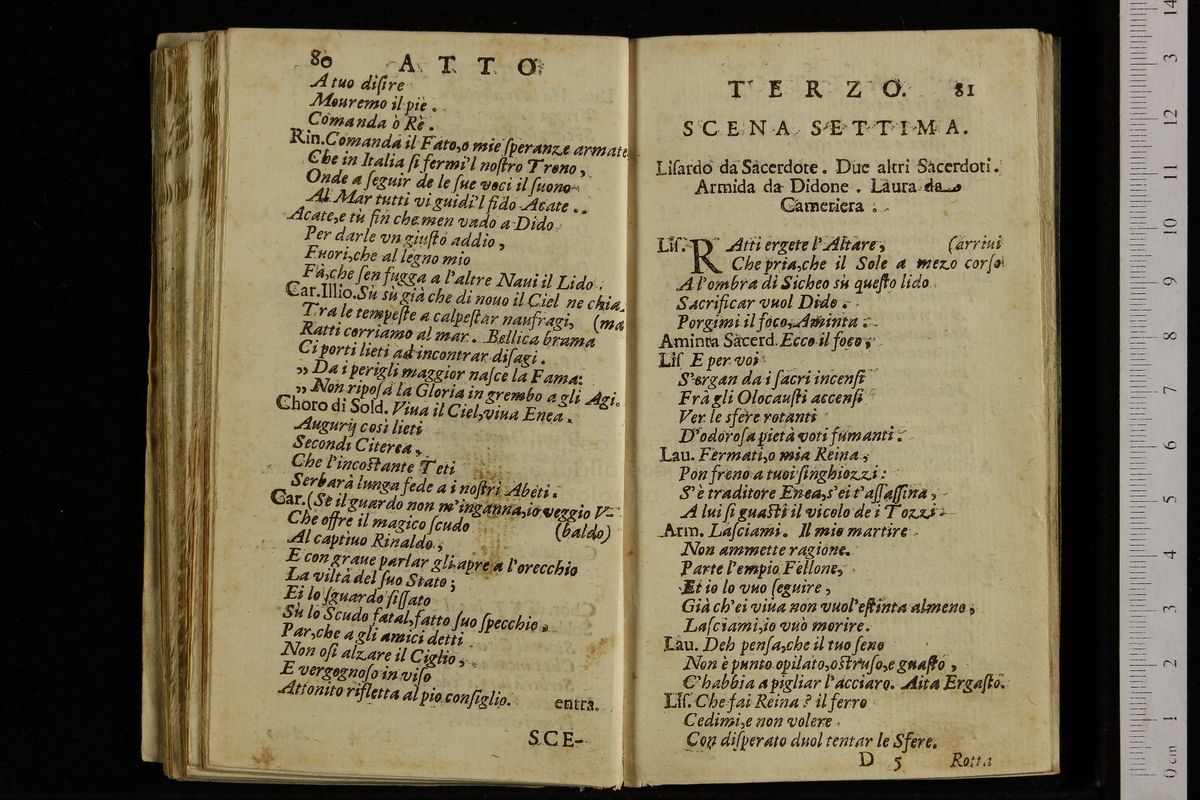 80 ATTO
A tuo diſire
Mouremo il piè.
Comanda ò Rè.
Rin. Comanda il Fato, o mie ſperanze armate
Che in Italia ſi fermi'l noſtro Treno,
Onde a ſeguir de le ſue voci il ſuono
Al Mar tutti vi guidi'l fido Acate.
Acate, e tù fin che men vado a Dido
Per darle vn giuſto addio,
Fuori, che al legno mio
Fà, che ſen fugga a l'altre Naui il Lido.
Car. Illio. Sù sù già che di nouo il Ciel ne chia-
Tra le tempeſte a calpeſtar naufragi, (ma
Ratti corriamo al mar. Bellica brama
Ci porti lieti ad incontrar diſagi.
„ Da i perigli maggior naſce la Fama:
„ Non ripoſa la Gloria in grembo a gli Agi.
Choro di Sold. Viua il Ciel, viua Enea.
Augurij così lieti
Secondi Citerea,
Che l'incoſtante Teti
Serbarà lunga fede a i noſtri Abeti.
Car. (Se il guardo non m'inganna, io veggio V-
Che offre il magico ſcudo (baldo)
Al captiuo Rinaldo;
E con graue parlar gli apre a l'orecchio
La viltà del ſuo Stato;
Ei lo ſguardo fiſſato
Sù lo Scudo fatal, fatto ſuo ſpecchio,
Par, che a gli amici detti
Non oſi alzare il Ciglio,
E vergognoſo in viſo
Attonito rifletta al pio conſiglio. entra.
SCE-
TERZO. 81
SCENA SETTIMA.
Liſardo da Sacerdote. Due altri Sacerdoti.
Armida da Didone. Laura da
Cameriera.
Liſ. RAtti ergete l'Altare, (arriui
Che pria, che il Sole a mezo corſo
A l'ombra di Sicheo sù queſto lido
Sacrificar vuol Dido.
Porgimi il foco, Aminta.
Aminta Sacerd. Ecco il foco,
Liſ E per voi
S'ergan da i ſacri incenſi
Frà gli Olocauſti accenſi
Ver le sfere rotanti
D'odoroſa pietà voti fumanti.
Lau. Fermati, o mia Reina,
Pon freno a tuoi ſinghiozzi:
S'è traditore Enea, s'ei t'aſſaſſina,
A lui ſi guaſti il vicolo de i Tozzi.
Arm. Laſciami. Il mio martire
Non ammette ragione.
Parte l'empio Fellone,
Et io lo vuo ſeguire,
Già ch'ei viua non vuol' eſtinta almeno,
Laſciami, io vuò morire.
Lau. Deh penſa, che il tuo ſeno
Non è punto opilato, oſtruſo, e guaſto,
C'habbia a pigliar l'acciaro. Aita Ergaſto.
Liſ. Che fai Reina? il ferro
Cedimi, e non volere
Con diſperato duol tentar le Sfere.
D 5 Rotta